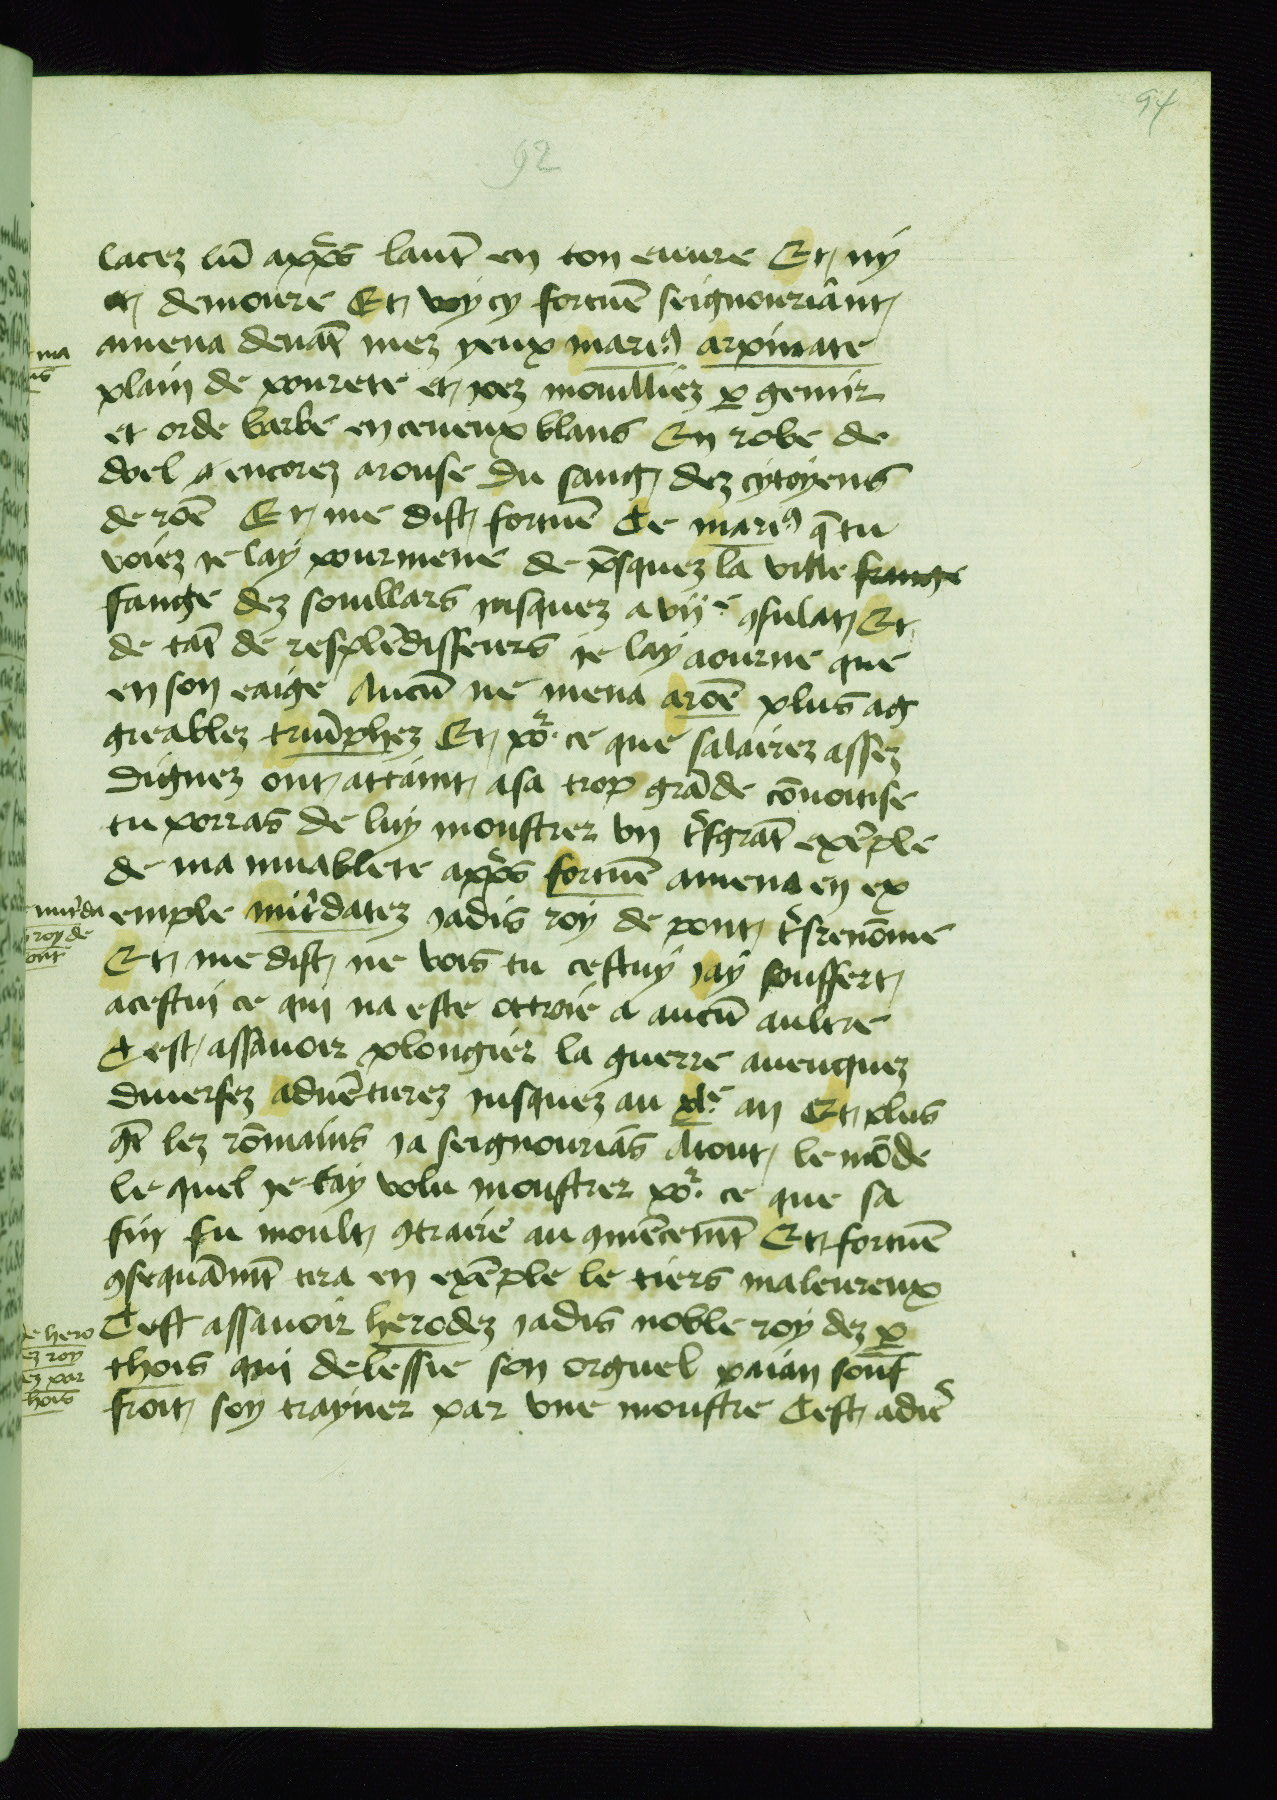 94
92
lacez lũ apps lautr̃ en ton euure Et ny
demoure Et voycy fortuẽ seignouriãnt
amena deuãt mez yeux mariꝰ arpinate
plain de pourete et pez moulliez ꝑ gemir
et orde barbe en ceueux blans En robe de
doel encorez arouse Du sang dez cytoyens
de rõe Et me dist fortuẽ Ce mariꝰ q̃ tu
voiez ie lay pourmene de p̃squez la ville frange
fange dez soullars iusquez a vijᵉ ꝯsulat Et
de tãt de resplẽdisseurs ie lay aourne que
en son eaige Aucũ ne mena a rõe plus ag
greablez triũphez Et põr ce que salairez assez
Dignez ont attaint a sa trop grãde cõuoitise
tu porras de luy monstrer vn t̾sgrãt exẽple
de ma muablete apps fortuẽ amena en ex
emple mit̾datez iadis roy de pont t̾srenõme
Et me dist ne vois tu cestuy iay souffert
a cestui ce qui na este ottroie a aucũ aultre
Cest assauoir plongier la guerre auencquez
diuersez aduẽturez iusquez au xlᵉ an Et plus
q̃t lez rõmains ia seignouriãs a tout le mõde
le quel ie tay volu monstrer põr ce que sa
fin fu moult ꝯtraire au ꝯmẽcemt̃ Et fortuẽ
ꝯsequãmt̃ tira en exẽple le tiers maleureux
Cest assauoir herodez iadis noble roy dez ꝑ
thois qui delessie son orguel paian souf
froit soy trayner par vne monstre Cest adir̾
ma
us
mit̾da
roy de
ont
de hero
ez roy
ez par
thois